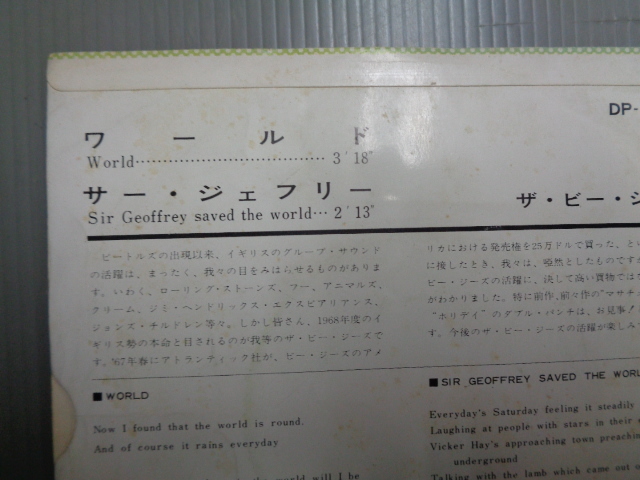 DP-
ワールド
World 3′18″
サー・ジェフリー
Sir Geoffrey saved the world… 2′13″
ザ・ビー・ジ
ビートルズの出現以来、イギリスのグループ・サウンド
の活躍は、まったく、我々の目をみはらせるものがありま
す。いわく、ローリング・ストーンズ、フー、アニマルズ、
クリーム、ジミ・ヘンドリックス・エクスピアリアンス、
ジョンズ・チルドレン等々。しかし皆さん、1968年度のイ
ギリス勢の本命と目されるのが我等のザ・ビー・ジーズで
す。'67年春にアトランティック社が、ビー・ジーズのアメ
リカにおける発売権を25万ドルで買った、とい
に接したとき、我々は、唖然としたものですが
ビー・ジーズの活躍に、決して高い買物では
がわかりました。特に前作、前々作の"マサチ
"ホリデイ"のダブル・パンチは、お見事
す。今後のザ・ビー・ジーズの活躍が楽しみ
■WORLD
Now I found that the world is round.
And of course it rains everyday
the world will I be
■SIR GEOFFREY SAVED THE WORL
Everyday's Saturday feeling it steadily
Laughing at people with stars in their
Vicker Hay's approaching town preachin
underground
Talking with the lamb which came out